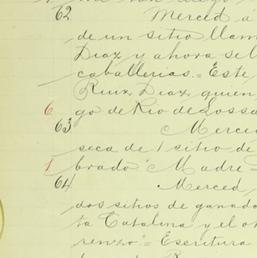 62 Merced á
de un sitio llam
Diaz y ahora se l
caballerias. = Este
Ruiz Diaz, quien
6 go de Rio de Lossa
63 Merced
seca de 1 sitio de
1 brado "Madre =
64 Merced
dos sitios de ganado
ta Catalina y el o
renzo. = Escritura